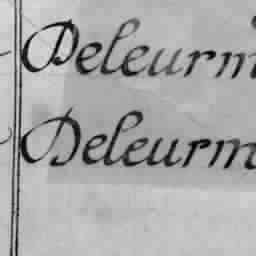 Deleurm
Deleurm